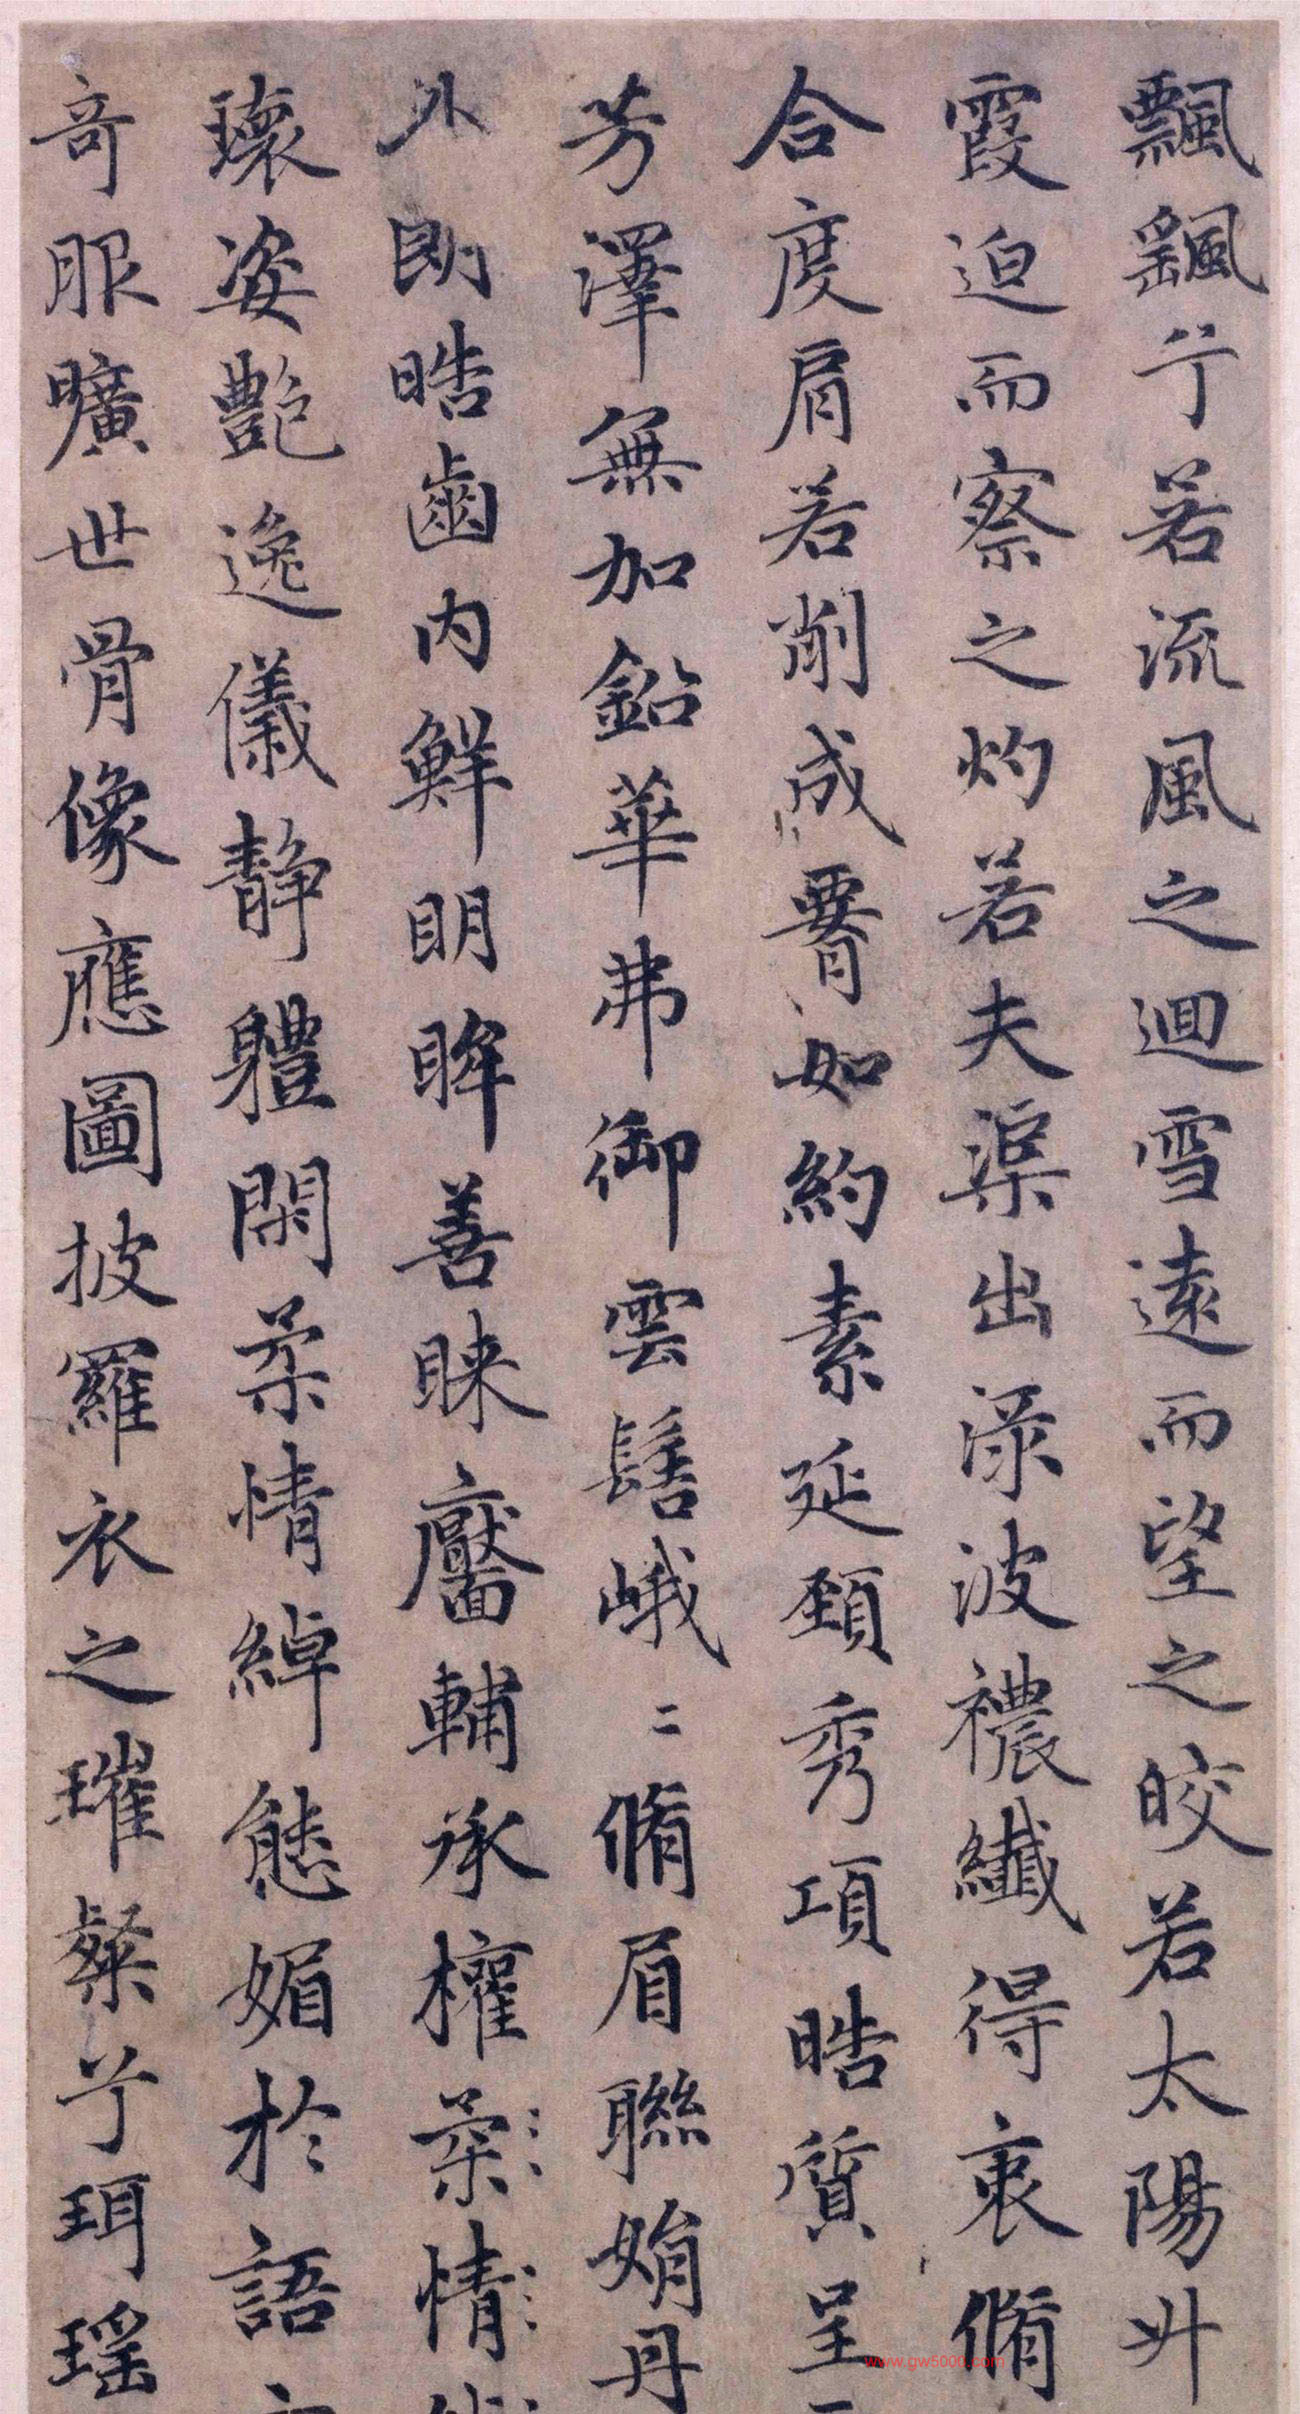 飄飖兮若流風之迴雪遠而望之皎若太陽升
霞迫而察之灼若夫渠出渌波襛纖得衷脩
合度肩若削成䙅如約素延頚秀項晧質呈
芳澤無加鉛華弗御雲髻峨〻脩眉聯娟丹
外朗晧齒内鮮明眸善睞靨輔承權柔情
瓌姿艶逸儀静軆閑柔情綽態媚於語
竒服曠世骨像應圖披羅衣之璀粲兮珥瑶
www.gw5000.com